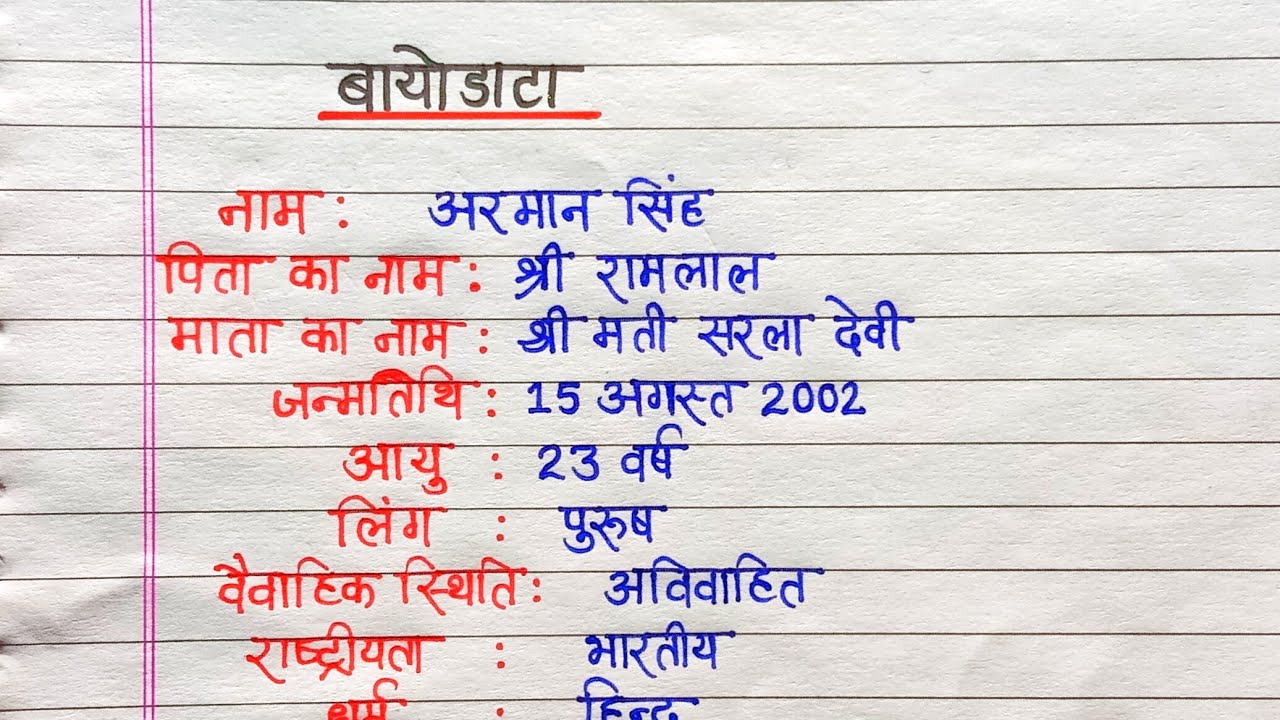 बायोडाटा
नाम : अरमान सिंह
पिता का नाम : श्री रामलाल
माता का नाम : श्री मती सरला देवी
जन्मतिथि : 15 अगस्त 2002
आयु : 23 वर्ष
लिंग : पुरूष
वैवाहिक स्थिति : अविवाहित
राष्ट्रीयता : भारतीय
धर्म : हिन्दू